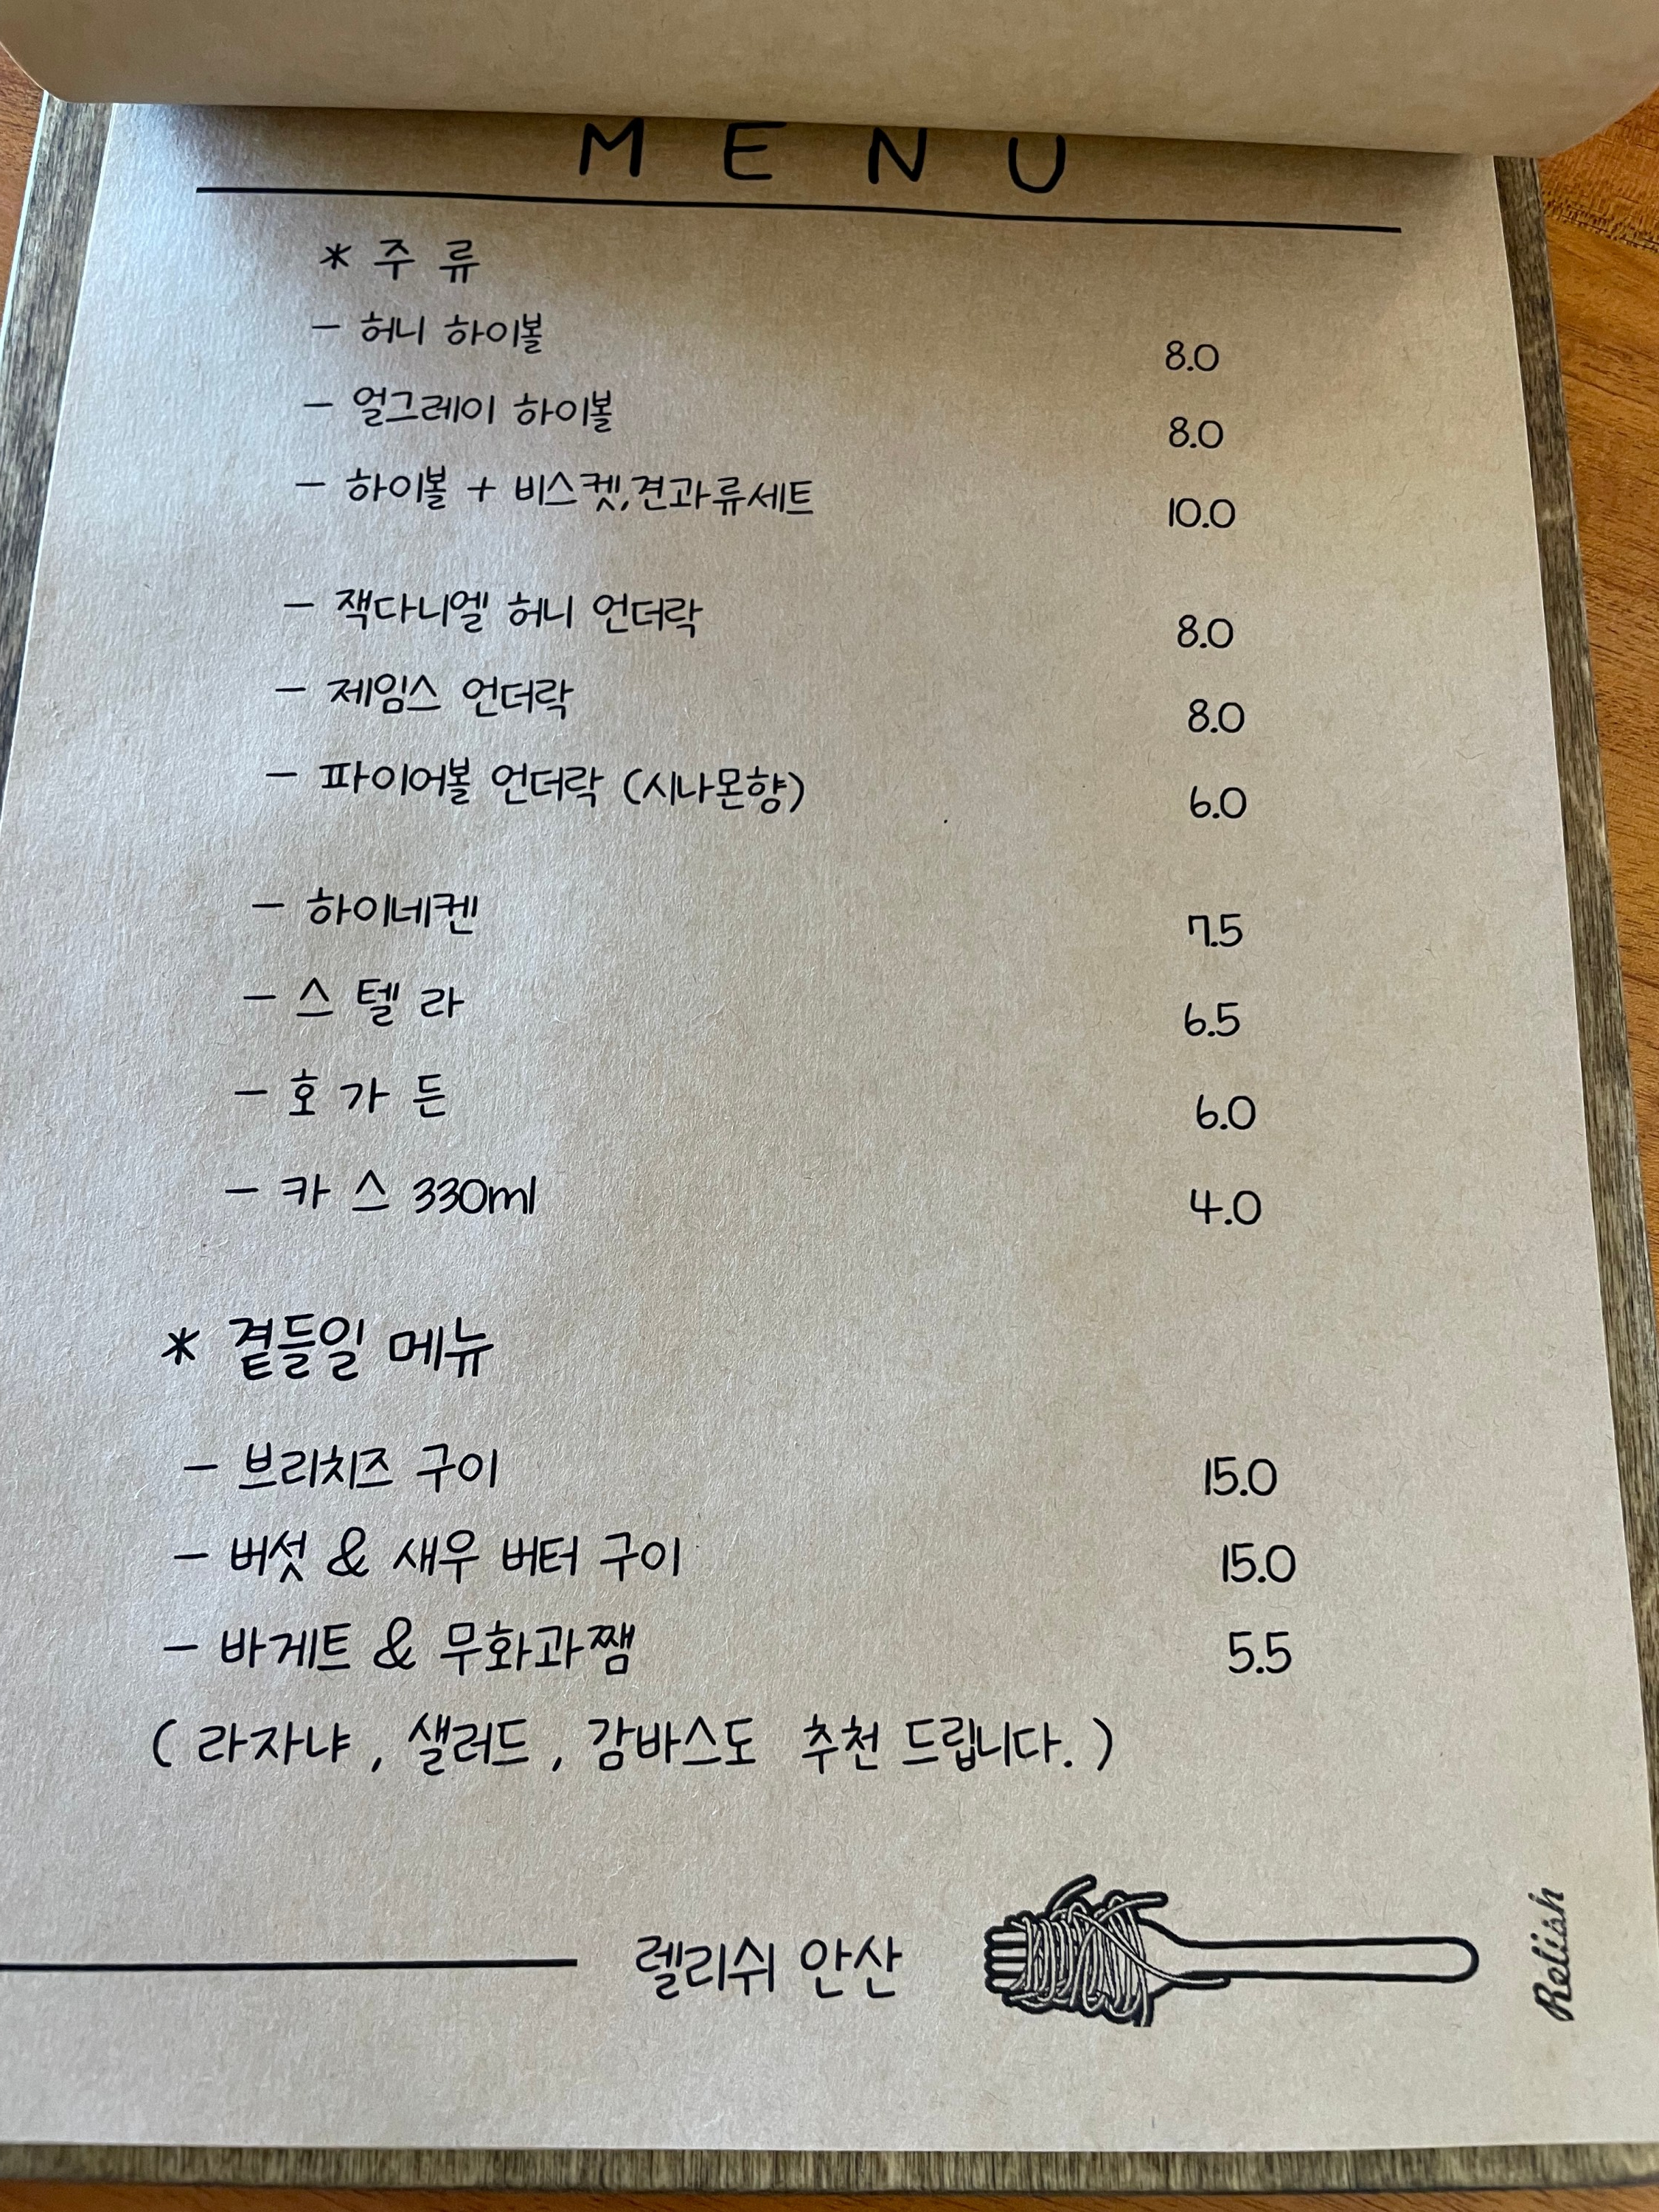 MENU
* 주 류
- 허니 하이볼 8.0
- 얼그레이 하이볼 8.0
- 하이볼 + 비스켓,견과류세트 10.0
- 잭다니엘 허니 언더락 8.0
- 제임스 언더락 8.0
- 파이어볼 언더락 (시나몬향) 6.0
- 하이네켄 7.5
- 스 텔 라 6.5
- 호 가 든 6.0
- 카 스 330ml 4.0
* 곁들일 메뉴
- 브리치즈 구이 15.0
- 버섯 & 새우 버터 구이 15.0
- 바게트 & 무화과쨈 5.5
( 라자냐 , 샐러드 , 감바스도 추천 드립니다. )
렐리쉬 안산
Relish